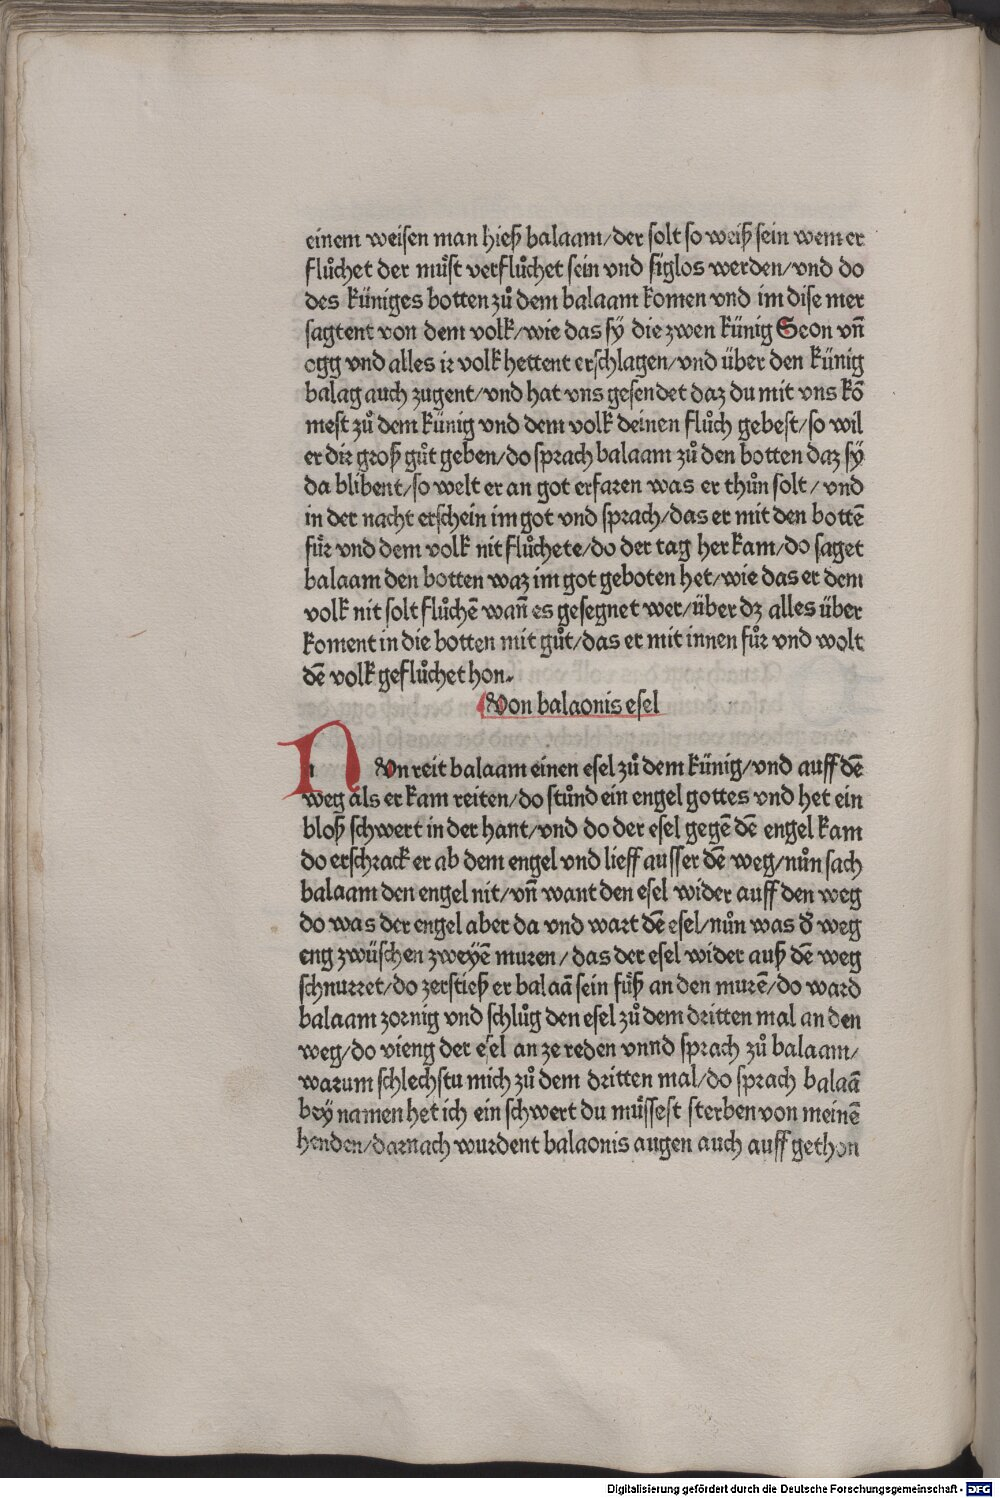 einem weisen man hieß balaam/der solt so weiß sein wem er
flůchet der mu̇st verflůchet sein vnd siglos werden/vnd do
des küniges botten zů dem balaam komen vnd im dise mer
sagtent von dem volk/wie das sÿ die zwen künig Seon vn̄
ogg vnd alles ir volk hettent erschlagen/vnd über den künig
balag auch zugent/vnd hat vns gesendet daz du mit vns kō
mest zů dem künig vnd dem volk deinen flůch gebest/so wil
er dir groß gůt geben/do sprach balaam zů den botten daz sÿ
da blibent/so welt er an got erfaren was er thůn solt/vnd
in der nacht erschein im got vnd sprach/das er mit den bottē
für vnd dem volk nit flůchete/do der tag her kam/do saget
balaam den botten waz im got geboten het/wie das er dem
volk nit solt flůchē wan̄ es gesegnet wer/über dz alles über
koment in die botten mit gůt/das er mit innen fůr vnd wolt
dē volk geflůchet hon.
Von balaonis esel
N Vn reit balaam einen esel zů dem künig/vnd auff dē
weg als er kam reiten/do stůnd ein engel gottes vnd het ein
bloß schwert in der hant/vnd do der esel gegē dē engel kam
do erschrack er ab dem engel vnd lieff ausser dē weg/nůn sach
balaam den engel nit/vn̄ want den esel wider auff den weg
do was der engel aber da vnd wart dē esel/nůn was d̄ weg
eng zwüschen zweyē muren/das der esel wider auß dē weg
schnurret/do zerstieß er balaā sein füß an den murē/do ward
balaam zornig vnd schlůg den esel zů dem dritten mal an den
weg/do vieng der esel an ze reden vnnd sprach zů balaam/
warum schlechstu mich zů dem dritten mal/do sprach balaā
beÿ namen het ich ein schwert du müssest sterben von meinē
henden/darnach wurdent balaonis augen auch auff gethon
Digitalisierung gefördert durch die Deutsche Forschungsgemeinschaft - DFG